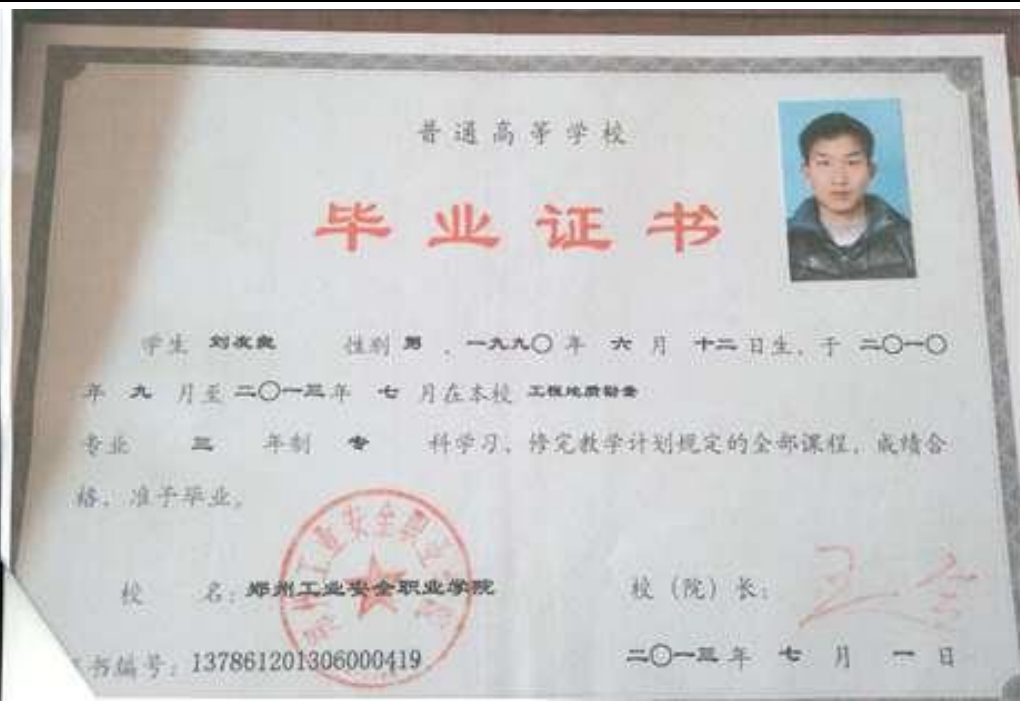 普通高等学校
毕业证书
学生 刘 性别 男 ，一九九〇年 六 月 十二 日生，于 二〇一〇
年 九 月至 二〇一三年 七 月在本校 工程地质勘查
专业 三 年制 专 科学习，修完教学计划规定的全部课程，成绩合
格，准予毕业。
校 名：郑州工业安全职业学院
校（院）长：
书编号：137861201306000419
二〇一三年 七 月 一 日